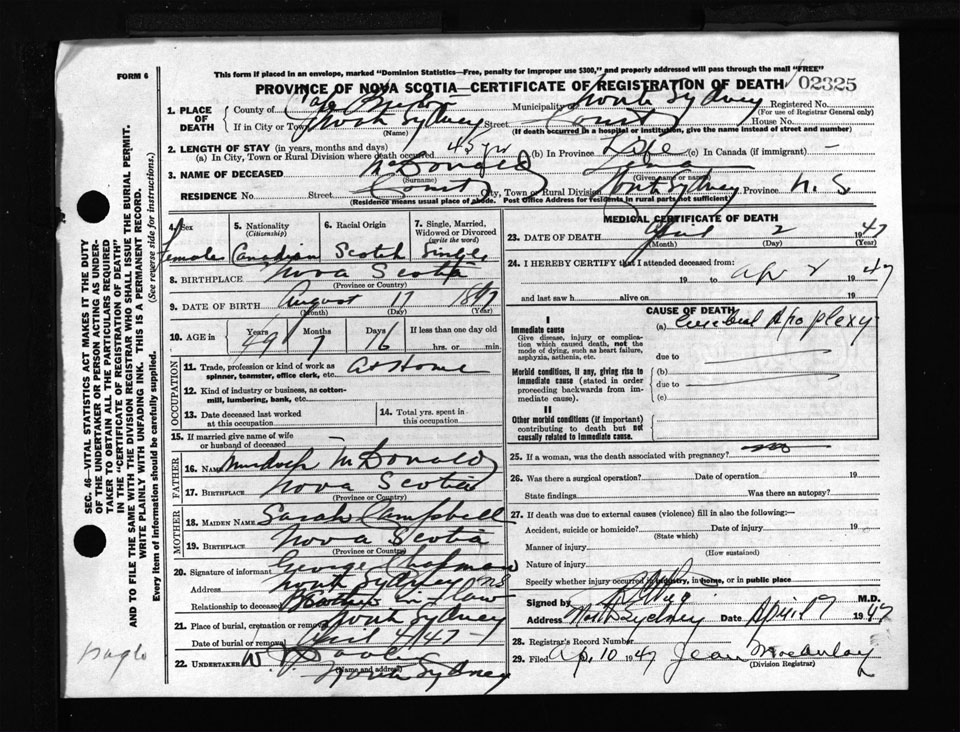 FORM 6
This form if placed in an envelope, marked "Dominion Statistics—Free, penalty for improper use $300," and properly addressed will pass through the mail "FREE"
PROVINCE OF NOVA SCOTIA—CERTIFICATE OF REGISTRATION OF DEATH
02325
1. PLACE OF DEATH
County of Cape Breton Municipality of North Sydney Registered No.
(For use of Registrar General only)
If in City or Town North Sydney Street Court House No.
(Name) (If death occurred in a hospital or institution, give the name instead of street and number)
2. LENGTH OF STAY (in years, months and days)
(a) In City, Town or Rural Division where death occurred 45 yrs (b) In Province Life (c) In Canada (if immigrant) —
3. NAME OF DECEASED McDonald
(Surname) (Given name or names)
RESIDENCE No. Street Court City, Town or Rural Division North Sydney Province N. S
(Residence means usual place of abode. Post Office Address for residents in rural parts not sufficient)
4. Sex Female
5. Nationality (Citizenship) Canadian
6. Racial Origin Scotch
7. Single, Married, Widowed or Divorced (write the word) Single
8. BIRTHPLACE Nova Scotia
(Province or Country)
9. DATE OF BIRTH August 17 1897
(Month) (Day) (Year)
10. AGE in Years Months Days If less than one day old
49 7 16 hrs. or min.
OCCUPATION
11. Trade, profession or kind of work as spinner, teamster, office clerk, etc. At Home
12. Kind of industry or business, as cotton-mill, lumbering, bank, etc.
13. Date deceased last worked at this occupation
14. Total yrs. spent in this occupation
15. If married give name of wife or husband of deceased
FATHER
16. NAME Murdoch McDonald
17. BIRTHPLACE Nova Scotia
(Province or Country)
MOTHER
18. MAIDEN NAME Sarah Campbell
19. BIRTHPLACE Nova Scotia
(Province or Country)
20. Signature of informant George Chapman
Address North Sydney N.S
Relationship to deceased Brother in law
21. Place of burial, cremation or removal North Sydney
Date of burial or removal April 4/47
22. UNDERTAKER
(Name and address)
North Sydney
MEDICAL CERTIFICATE OF DEATH
23. DATE OF DEATH April 2 1947
(Month) (Day) (Year)
24. I HEREBY CERTIFY that I attended deceased from:
19 to Apr 2 1947
and last saw h alive on 19
CAUSE OF DEATH
I
Immediate cause
Give disease, injury or complication which caused death, not the mode of dying, such as heart failure, asphyxia, asthenia, etc.
(a) Cerebral Apoplexy
due to
Morbid conditions, if any, giving rise to immediate cause (stated in order proceeding backwards from immediate cause).
(b)
due to
(c)
II
Other morbid conditions (if important) contributing to death but not causally related to immediate cause.
25. If a woman, was the death associated with pregnancy? no
26. Was there a surgical operation? Date of operation 19
State findings Was there an autopsy?
27. If death was due to external causes (violence) fill in also the following:—
Accident, suicide or homicide? Date of injury 19
(State which)
Manner of injury
(How sustained)
Nature of injury
Specify whether injury occurred in industry, in home, or in public place
Signed by M.D.
Address North Sydney Date April 9 1947
28. Registrar's Record Number
29. Filed Ap. 10 1947 Jean
(Division Registrar)
SEC. 46—VITAL STATISTICS ACT MAKES IT THE DUTY
OF THE UNDERTAKER OR PERSON ACTING AS UNDER-
TAKER TO OBTAIN ALL THE PARTICULARS REQUIRED
IN THE "CERTIFICATE OF REGISTRATION OF DEATH"
AND TO FILE THE SAME WITH THE DIVISION REGISTRAR WHO SHALL ISSUE THE BURIAL PERMIT.
WRITE PLAINLY WITH UNFADING INK. THIS IS A PERMANENT RECORD.
Every item of information should be carefully supplied. (See reverse side for instructions.)